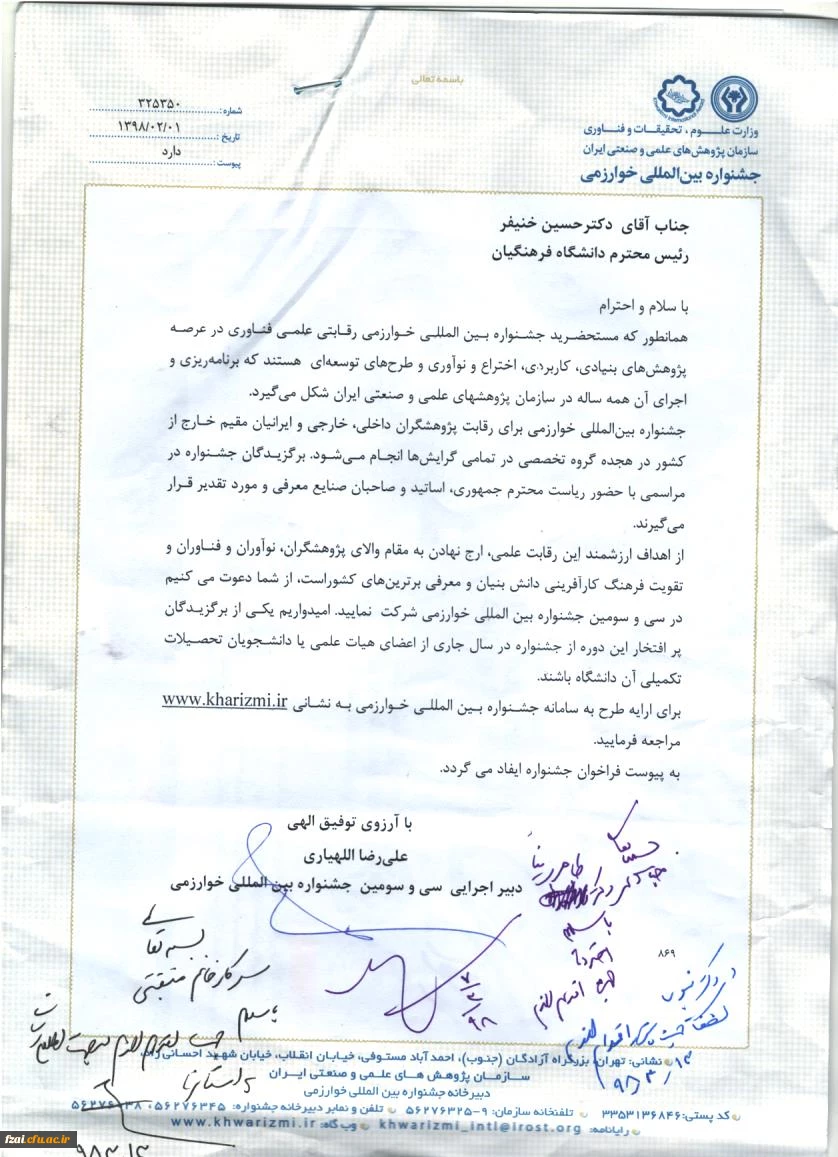 باسمه تعالی
Khwarizmi International Award
وزارت علوم، تحقیقات و فناوری
سازمان پژوهش‌های علمی و صنعتی ایران
جشنواره بین‌المللی خوارزمی
شماره: ۳۲۵۳۵۰
تاریخ: ۱۳۹۸/۰۲/۰۱
پیوست: دارد
جناب آقای دکترحسین خنیفر
رئیس محترم دانشگاه فرهنگیان
با سلام و احترام
همانطور که مستحضرید جشنواره بین المللی خوارزمی رقابتی علمی فناوری در عرصه
پژوهش‌های بنیادی، کاربردی، اختراع و نوآوری و طرح‌های توسعه‌ای هستند که برنامه‌ریزی و
اجرای آن همه ساله در سازمان پژوهشهای علمی و صنعتی ایران شکل می‌گیرد.
جشنواره بین‌المللی خوارزمی برای رقابت پژوهشگران داخلی، خارجی و ایرانیان مقیم خارج از
کشور در هجده گروه تخصصی در تمامی گرایش‌ها انجام می‌شود. برگزیدگان جشنواره در
مراسمی با حضور ریاست محترم جمهوری، اساتید و صاحبان صنایع معرفی و مورد تقدیر قرار
می‌گیرند.
از اهداف ارزشمند این رقابت علمی، ارج نهادن به مقام والای پژوهشگران، نوآوران و فناوران و
تقویت فرهنگ کارآفرینی دانش بنیان و معرفی برترین‌های کشوراست، از شما دعوت می کنیم
در سی و سومین جشنواره بین المللی خوارزمی شرکت نمایید. امیدواریم یکی از برگزیدگان
پر افتخار این دوره از جشنواره در سال جاری از اعضای هیات علمی یا دانشجویان تحصیلات
تکمیلی آن دانشگاه باشند.
برای ارایه طرح به سامانه جشنواره بین المللی خوارزمی به نشانی www.kharizmi.ir
مراجعه فرمایید.
به پیوست فراخوان جشنواره ایفاد می گردد.
با آرزوی توفیق الهی
علی‌رضا اللهیاری
دبیر اجرایی سی و سومین جشنواره بین المللی خوارزمی
بسمه تعالی
سرکار خانم
با سلام
۸۶۹
۹۸/۲/۷
نشانی: تهران، بزرگراه آزادگان (جنوب)، احمد آباد مستوفی، خیابان انقلاب، خیابان شهید احسانی راد،
سازمان پژوهش های علمی و صنعتی ایران
دبیرخانه جشنواره بین المللی خوارزمی
کد پستی: ۳۳۵۳۱۳۶۸۴۶ تلفنخانه سازمان: ۹-۵۶۲۷۶۳۲۵ تلفن و نمابر دبیرخانه جشنواره: ۵۶۲۷۶۳۴۵
رایانامه: khwarizmi_intl@irost.org وب گاه: www.khwarizmi.ir
fzai.cfu.ac.ir